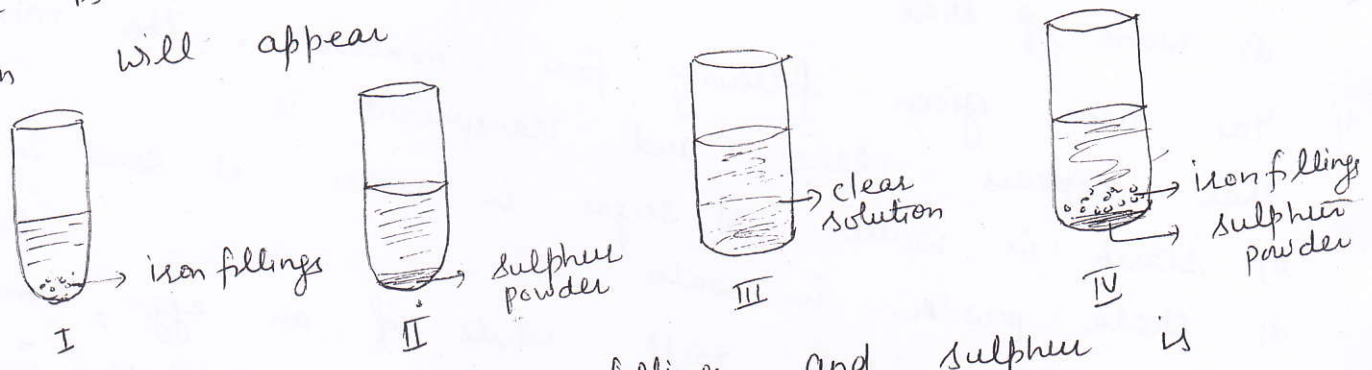 will appear
iron fillings
I
sulpheur
powder
II
clear
solution
III
iron fillings
sulpheur
powder
IV
and sulpheur is